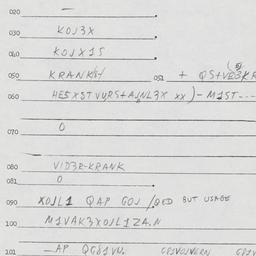 020 —
030 KOJ3X
040 KOJX15
050 KRANKH 051 + QS+VE3KR
060 HE5XSTVURS+AJNL3X XX)-M1ST---
070 O
080 VID3R-KRANK
081 O
090 XOJL1 QAP GOJ /QED BUT USAGE
100 M1VAK3XOJL1ZA.N
101 —AP